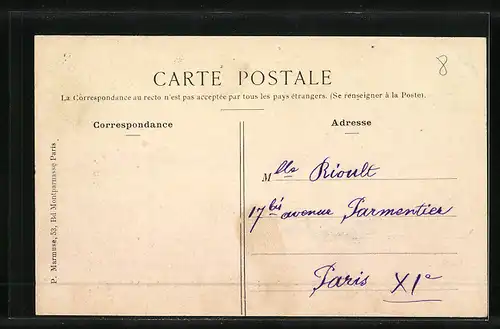 8
CARTE POSTALE
La Correspondance au recto n'est pas acceptée par tous les pays étrangers. (Se renseigner à la Poste).
Correspondance
Adresse
P. Marmuse, 53, Bd Montparnasse Paris
Mlle Rioult
17bis avenue Parmentier
Paris XIe